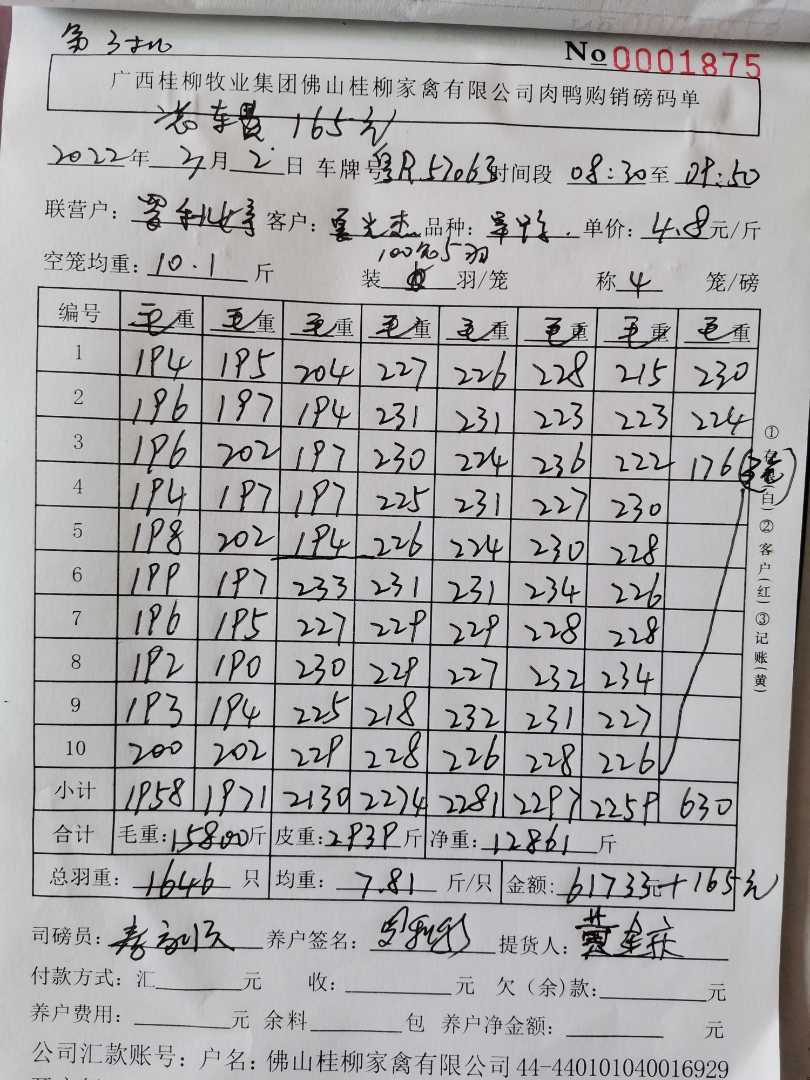 第3批
No 0001875
广西桂柳牧业集团佛山桂柳家禽有限公司肉鸭购销磅码单
总车费 165元
2022年 3月 2日 车牌号 粤R57063 时间段 08:30至 09:50
联营户: 客户: 夏光杰 品种: 单价: 4.8元/斤
100只5羽
空笼均重: 10.1 斤 装 羽/笼 称 4 笼/磅
编号 毛重 毛重 毛重 毛重 毛重 毛重 毛重 毛重
1 194 195 204 227 226 228 215 230
2 196 197 194 231 231 223 223 224
3 196 202 197 230 224 236 222 176
4 194 197 197 225 231 227 230
5 198 202 194 226 224 230 228
6 199 197 233 231 231 234 226
7 196 195 227 229 229 228 228
8 192 190 230 229 227 232 234
9 193 194 225 218 232 231 227
10 200 202 229 228 226 228 226
小计 1958 1971 2130 2274 2281 2297 2259 630
合计 毛重:15800斤 皮重:2939斤 净重:12861斤
总羽重: 1646 只 均重: 7.81 斤/只 金额: 61733元+165元
司磅员: 养户签名: 提货人:
付款方式: 汇 元 收: 元 欠(余)款: 元
养户费用: 元 余料 包 养户净金额: 元
公司汇款账号: 户名: 佛山桂柳家禽有限公司 44-440101040016929
①存根(白)②客户(红)③记账(黄)